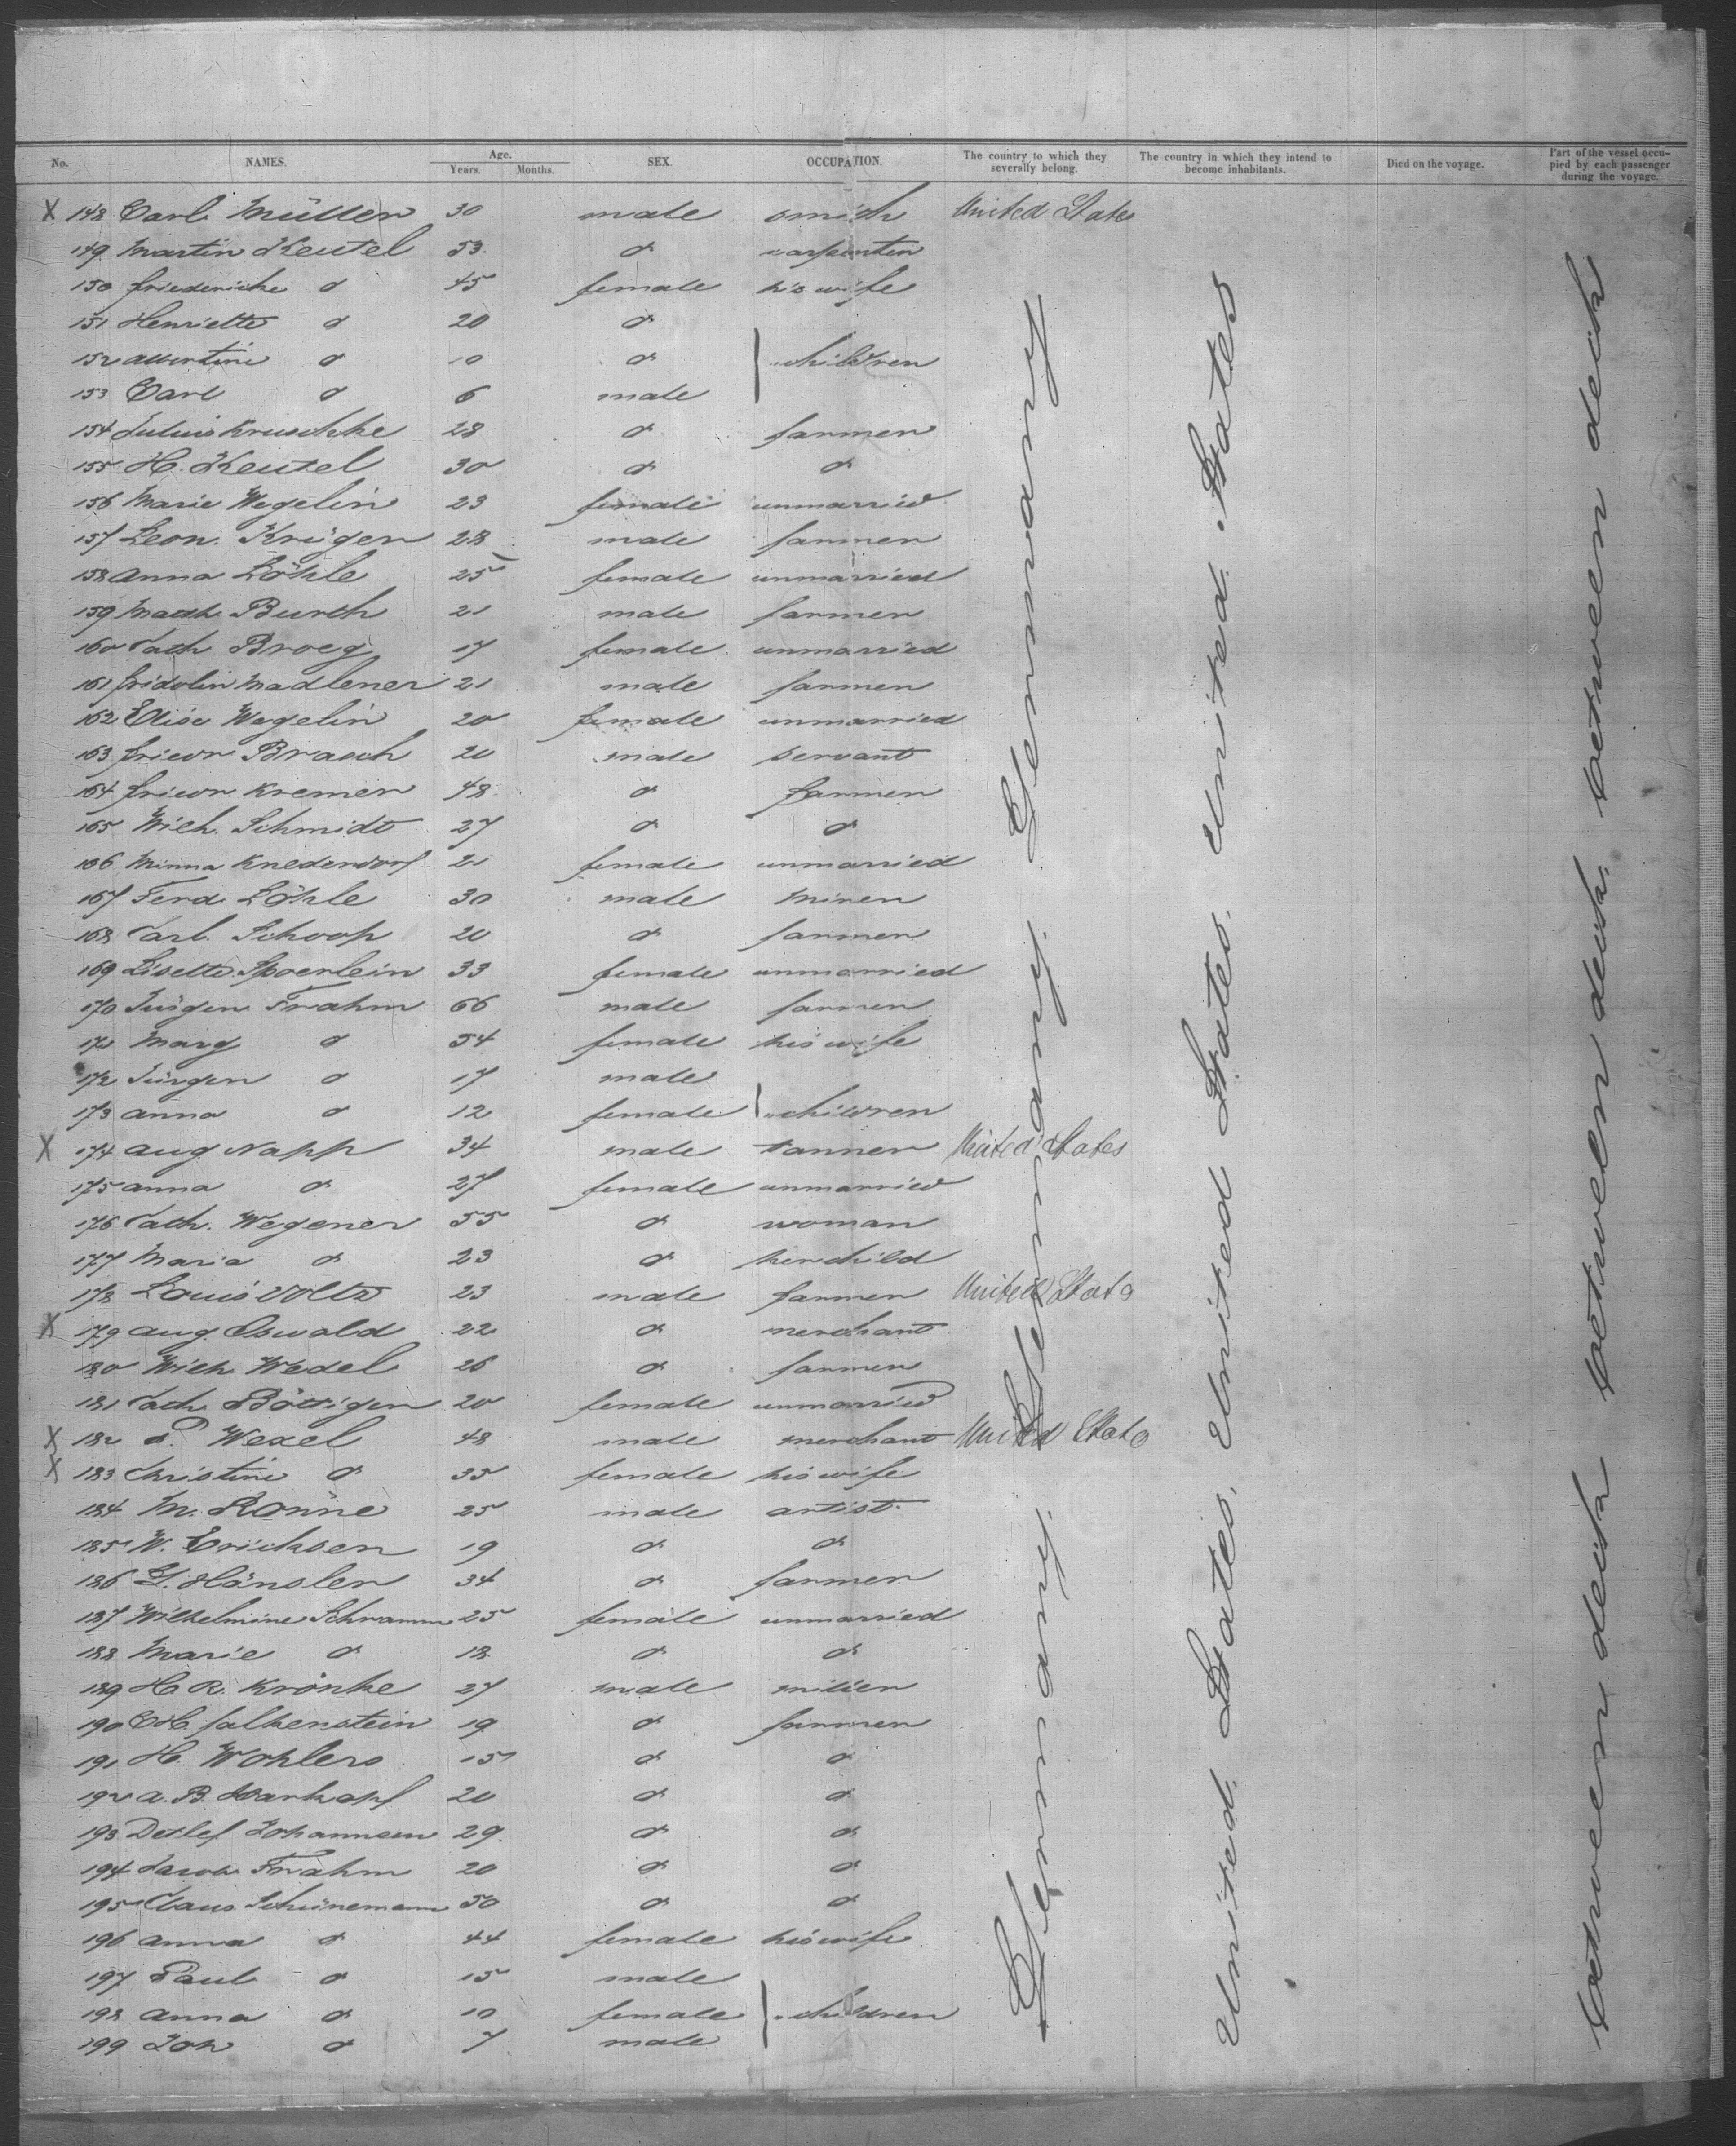 No. NAMES. Age. Years. Months. SEX. OCCUPATION. The country to which they severally belong. The country in which they intend to become inhabitants. Died on the voyage. Part of the vessel occupied by each passenger during the voyage.
X 148 Carl Müller 30 male smith United States
149 Martin Keutel 53 d carpenter
150 Friedericke d 45 female his wife
151 Henriette d 20 d
152 Albertine d 10 d } children
153 Carl d 6 male
154 Julius Kruschke 28 d farmer
155 H. Keutel 30 d d
156 Marie Wegelin 23 female unmarried
157 Leon. Krüger 28 male farmer
158 Anna Löhle 25 female unmarried
159 Math. Burth 21 male farmer
160 Cath Broeg 17 female unmarried
161 Fridolin Madlener 21 male farmer
162 Elise Wegelin 20 female unmarried
163 Friedr Brasch 20 male servant
164 Friedr. Kremer 48 d farmer
165 Wilh. Schmidt 27 d d
166 Minna Knedendorf 21 female unmarried
167 Ferd. Löhle 30 male miner
168 Carl. Schoop 20 d farmer
169 Lisette Spoerlein 33 female unmarried
170 Jürgen Frahm 66 male farmer
171 Marg d 54 female his wife
172 Jürgen d 17 male
173 Anna d 12 female } children
X 174 Aug Napp 34 male tanner United States
175 Anna d 27 female unmarried
176 Cath. Wegener 55 d woman
177 Maria d 23 d her child
178 Louis Voltz 23 male farmer United States
X 179 Aug. Oswald 22 d merchant
180 Wilh. Wedel 26 d farmer
181 Cath. Böttiger 20 female unmarried
X 182 P. Wexel 48 male merchant United States
X 183 Christine d 35 female his wife
184 M. Ronne 25 male artist
185 W. Erichsen 19 d d
186 G. Hänsler 34 d farmer
187 Wilhelmine Schramm 25 female unmarried
188 Marie d 18 d d
189 H. R. Krönke 27 male miller
190 Falkenstein 19 d farmer
191 H. Wohlers 15 d d
192 A. B. 20 d d
193 Detlef Johannsen 29 d d
194 Jacob Frahm 20 d d
195 Claus Schünemann 50 d d
196 Anna d 44 female his wife
197 Paul d 15 male
198 Anna d 10 female } children
199 Joh d 7 male
Germany Germany Germany
United States United States. United States.
between deck between deck between deck